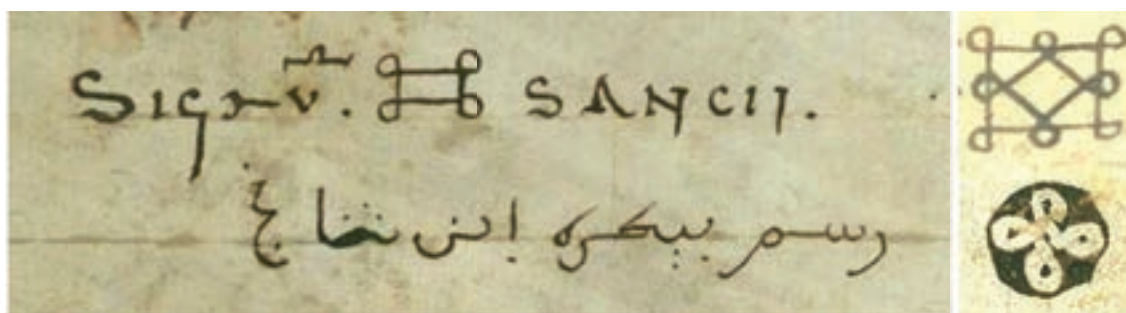 Signū. SANCII.
رسم بيطره ابن شانج